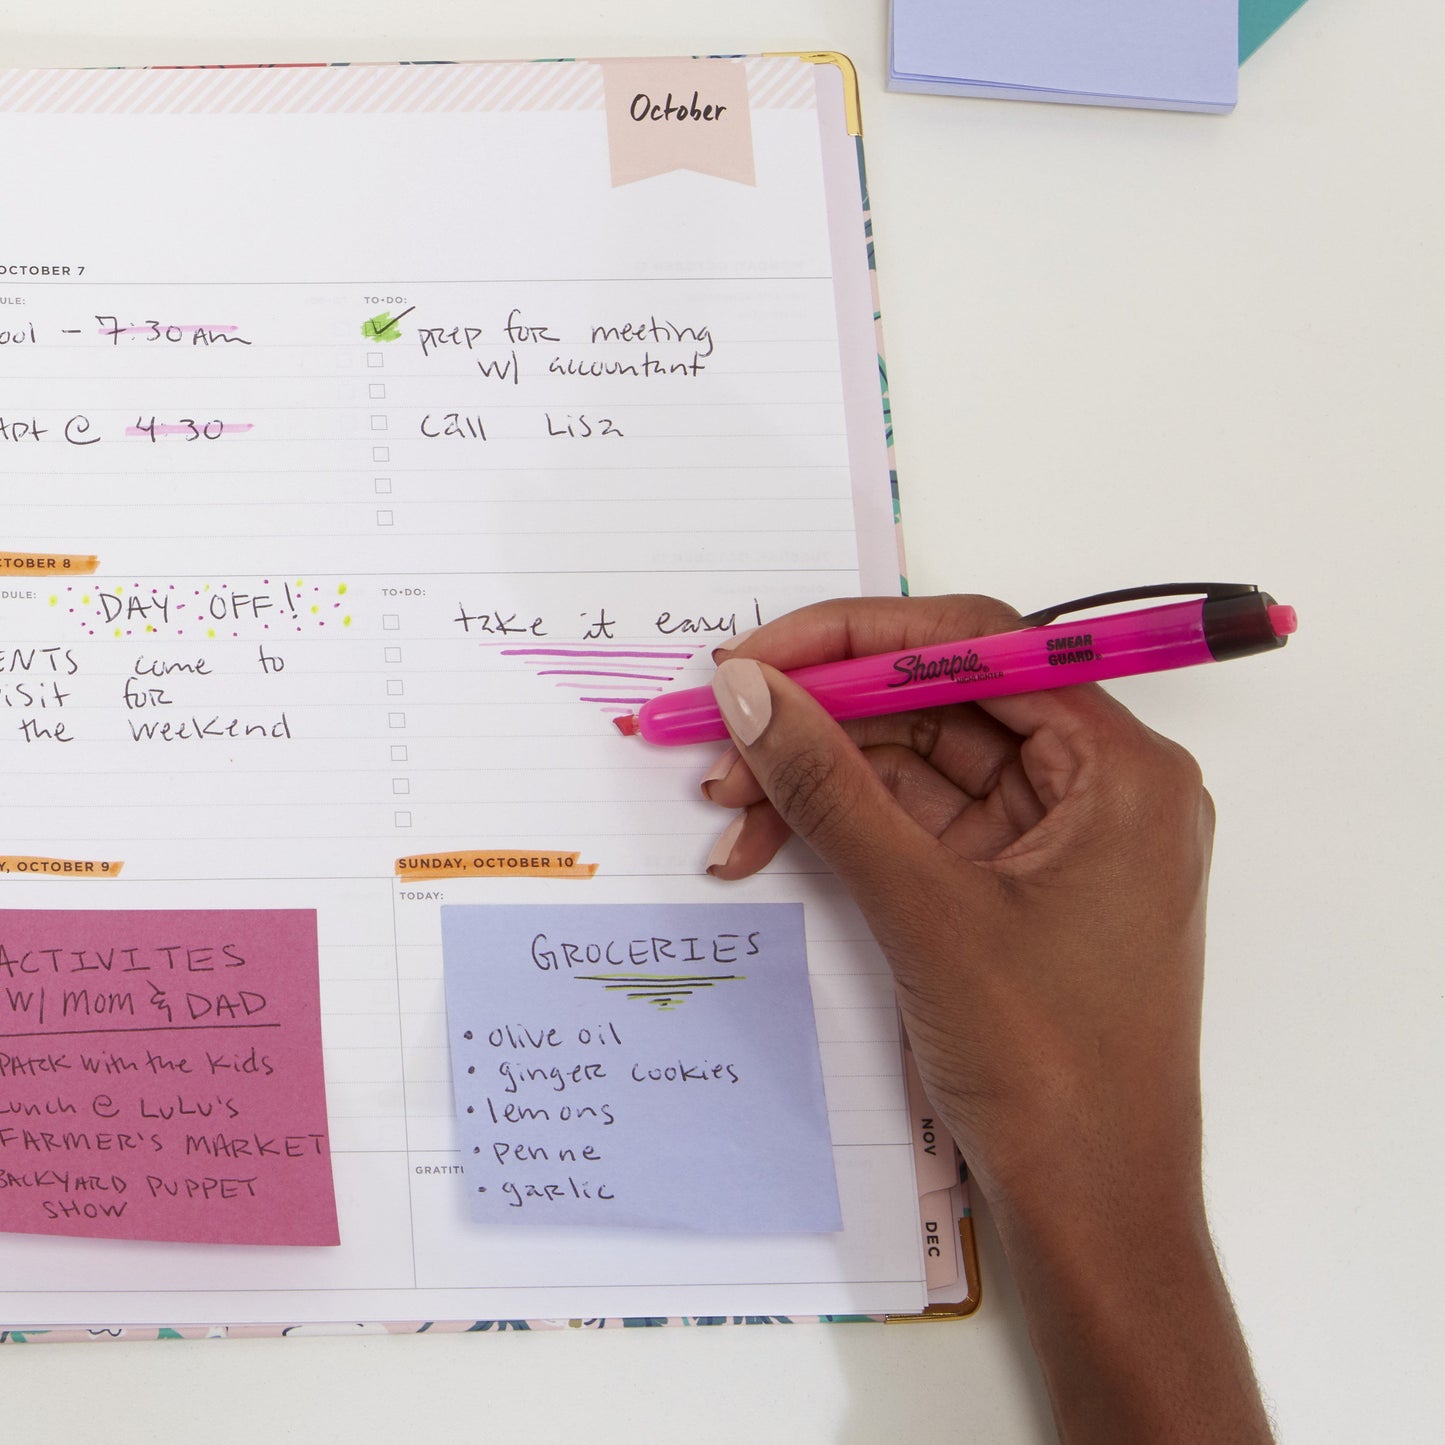 October
OCTOBER 7
ULE:
TO•DO:
ool - 7:30 Am
prep for meeting
w/ accountant
Apt @ 4:30
call Lisa
CTOBER 8
DULE:
TO•DO:
DAY OFF!
take it easy!
ENTS come to
visit for
the weekend
Sharpie®
HIGHLIGHTER
SMEAR
GUARD®
Y, OCTOBER 9
SUNDAY, OCTOBER 10
TODAY:
ACTIVITES
W/ MOM & DAD
PARK with the kids
Lunch @ LuLu's
FARMER'S MARKET
BACKYARD PUPPET
SHOW
GROCERIES
• olive oil
• ginger cookies
• lemons
• penne
• garlic
GRATIT
NOV
DEC